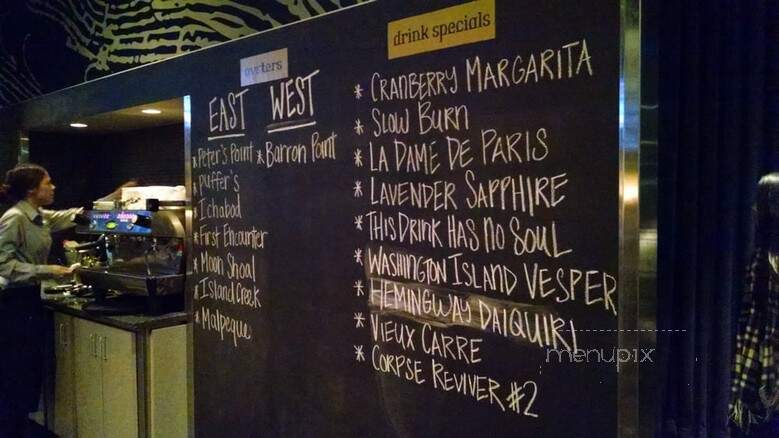 oysters
EAST
* Peter's Point
* Puffer's
* Ichabod
* First Encounter
* Moon Shoal
* Island Creek
* Malpeque
WEST
* Barron Point
drink specials
* CRANBERRY MARGARITA
* SLOW BURN
* LA DAME DE PARIS
* LAVENDER SAPPHIRE
* THIS DRINK HAS NO SOUL
* WASHINGTON ISLAND VESPER
* HEMINGWAY DAIQUIRI
* VIEUX CARRE
* CORPSE REVIVER #2
menupix